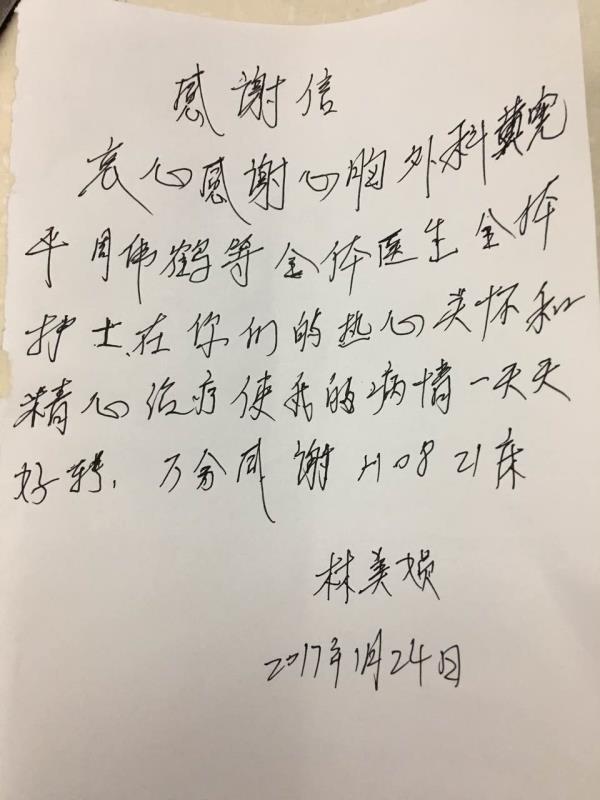 感谢信
衷心感谢心胸外科龚宪
平周伟鹤等全体医生全体
护士在你们的热心关怀和
精心治疗使我的病情一天天
好转,万分感谢 2108 21床
林美
2017年1月24日